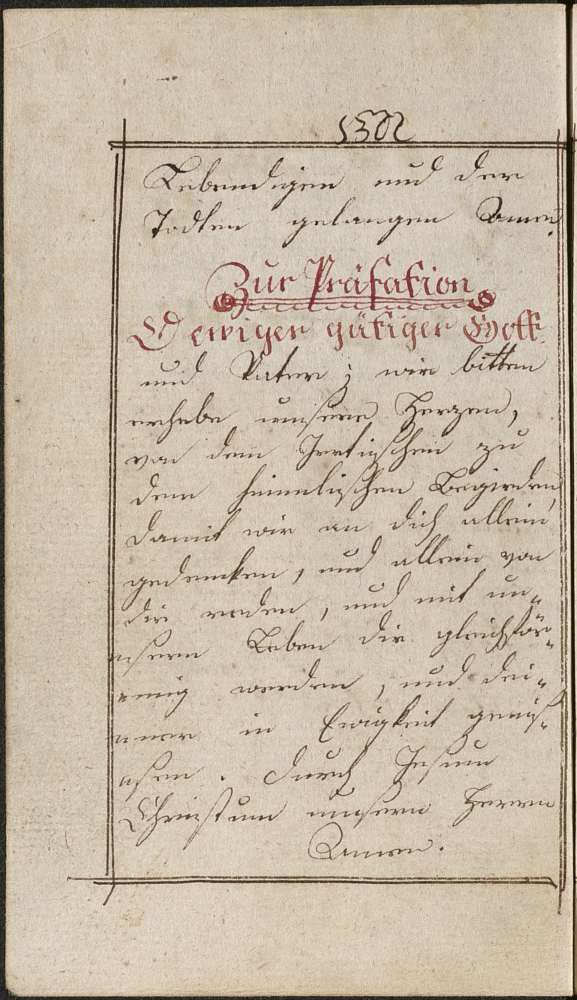 Lebendigen und der
Todten gelangen Amen.
Zur Präfation
O ewiger gütiger Gott
und Vater; wir bitten
erhebe unsere Herzen,
von dem Irrdischen zu
den himmlischen Begirden
damit wir an dich allein
gedencken, und allein von
dir reden, und mit un-
nsern Leben dir gleichför-
rmig werden, und dei-
nner in Ewigkeit genüs-
nsen. Durch Jesum
Christum unsern Herrn
Amen.